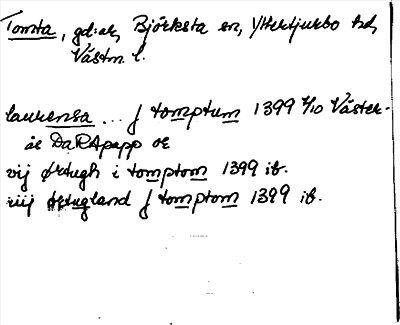 Tomta, gd:ar, Björksta sn, Yttertjurbo hd,
Västm l.
laurensa ... j tomptum 1399 4/10 Väster-
ås DaRApapp or
vij ørtugh i tomptom 1399 ib.
iiij ørtugland j tomptom 1399 ib.